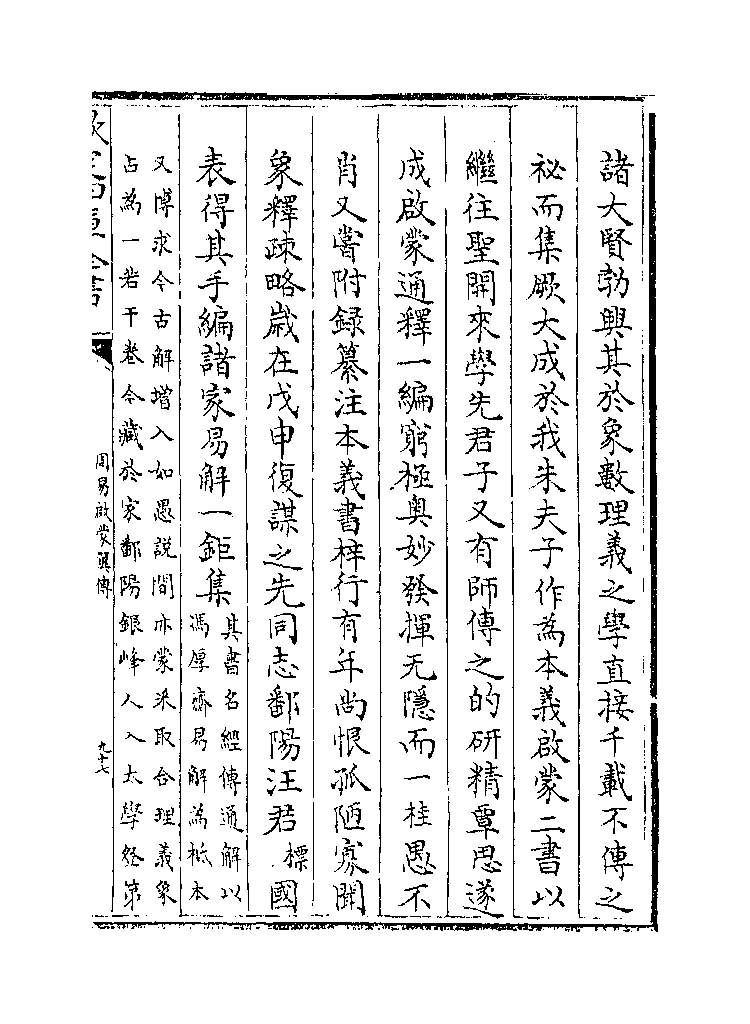 諸大賢勃興其於象數理義之學直接千載不傳之
祕而集厥大成於我朱夫子作為本義啟蒙二書以
繼往聖開來學先君子又有師傳之的研精覃思遂
成啟蒙通釋一編窮極奥妙發揮无隱而一桂愚不
肖又嘗附録纂注本義書梓行有年尚恨孤陋寡聞
象釋疎略歲在戊申復謀之先同志鄱陽汪君標國
表得其手編諸家易解一鉅集其書名經傳通解以
馮厚齋易解為柢本
又博求今古解增入如愚説間亦蒙采取合理義象
占為一若干卷今藏於家鄱陽銀峰人入太學登第
欽定四庫全書
周易啟蒙翼傳
九十七